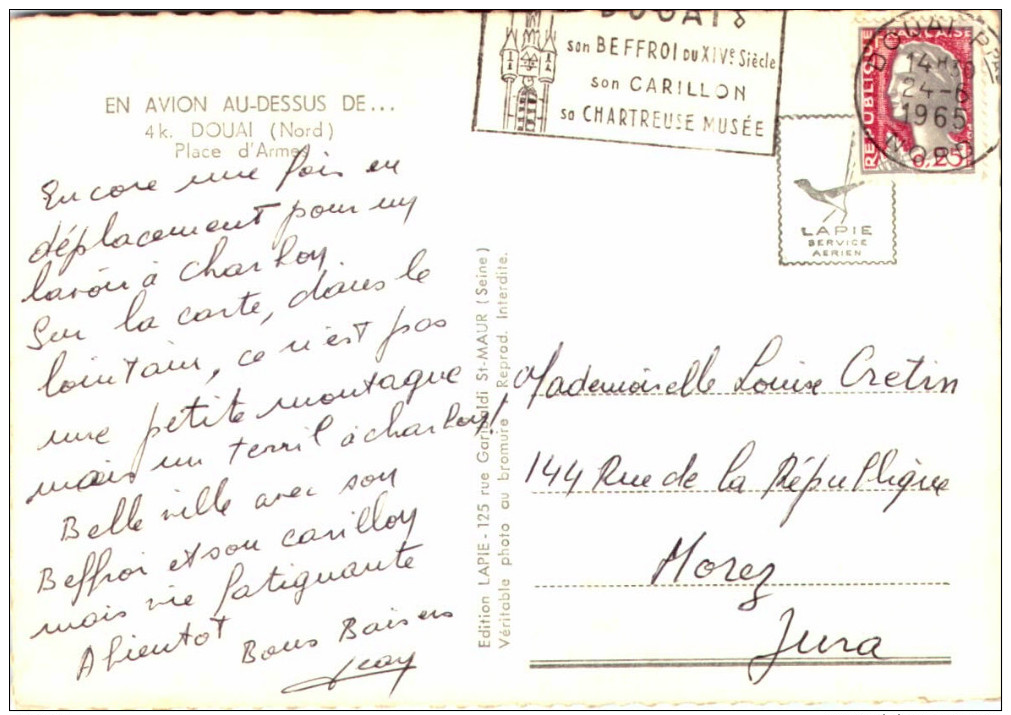 DOUAI
son BEFFROI DU XIVe Siècle
son CARILLON
sa CHARTREUSE MUSÉE
RÉPUBLIQUE FRANÇAISE
0,25
DOUAI R.P.
14H
24-6
1965
NORD
LAPIE
SERVICE
AERIEN
EN AVION AU-DESSUS DE...
4 k. DOUAI (Nord)
Place d'Armes
Encore une fois en
déplacement pour un
lavoir à charbon.
Sur la carte, dans le
lointain, ce n'est pas
une petite montagne
mais un terril à charbon!
Belle ville avec son
Beffroi et son carillon
mais vie fatiguante
A bientot
Bons Baisers
Jean
Edition LAPIE - 125 rue Garibaldi St-MAUR (Seine)
Véritable photo au bromure. Reprod. Interdite.
Mademoiselle Louise Cretin
144 Rue de la République
Morez
Jura